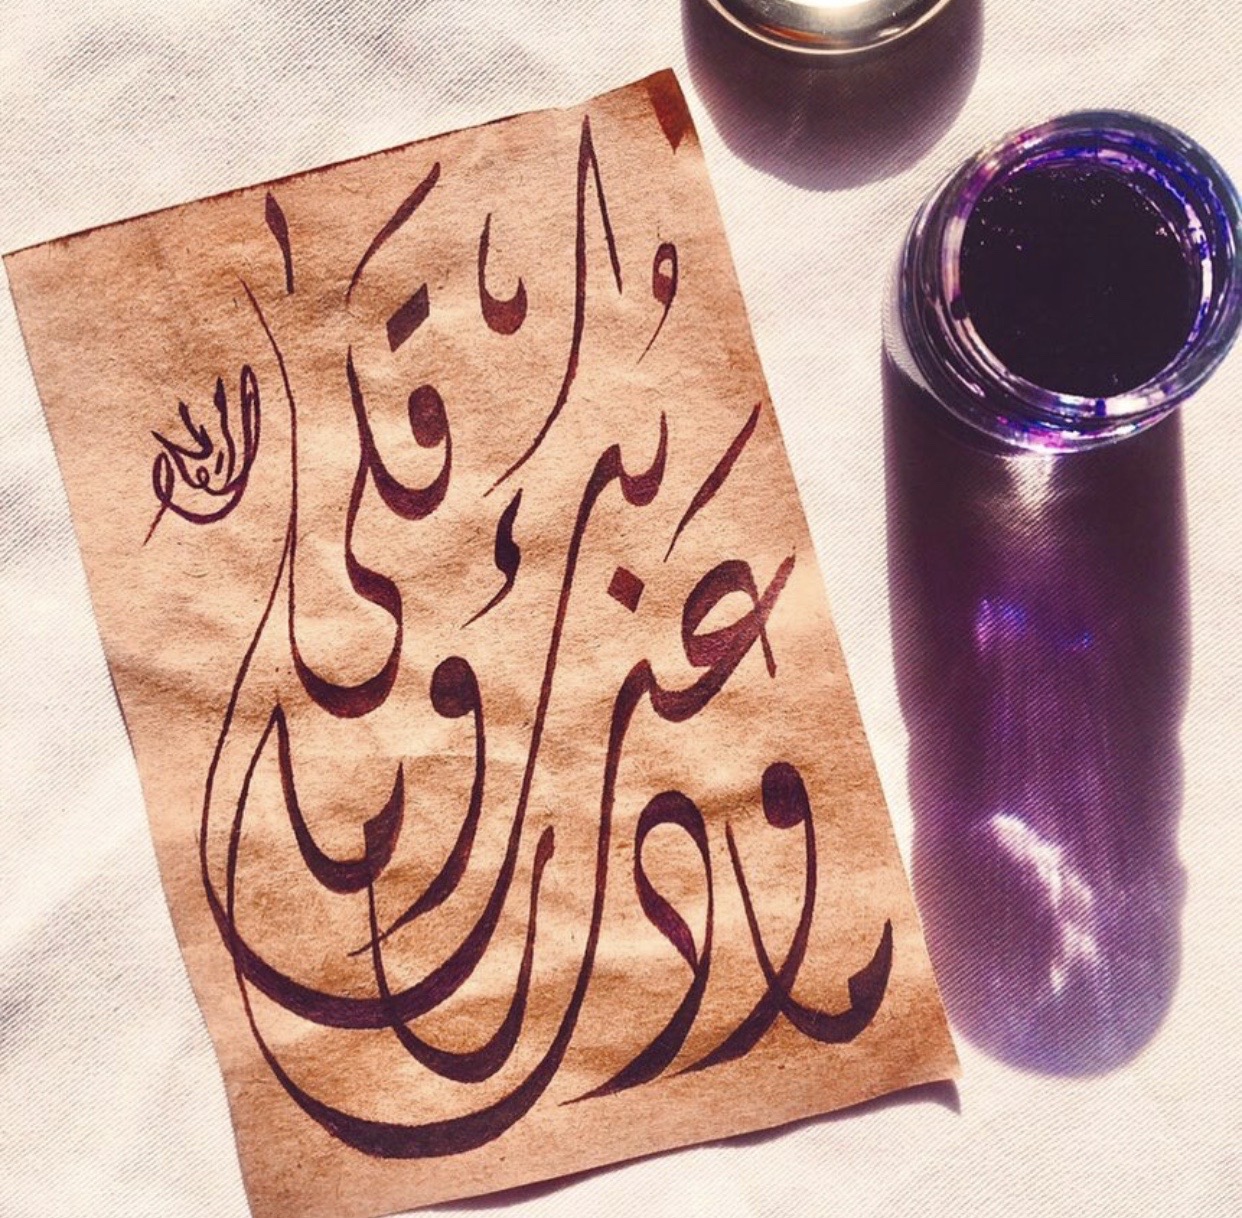 ما ودعك ربك وما قلى